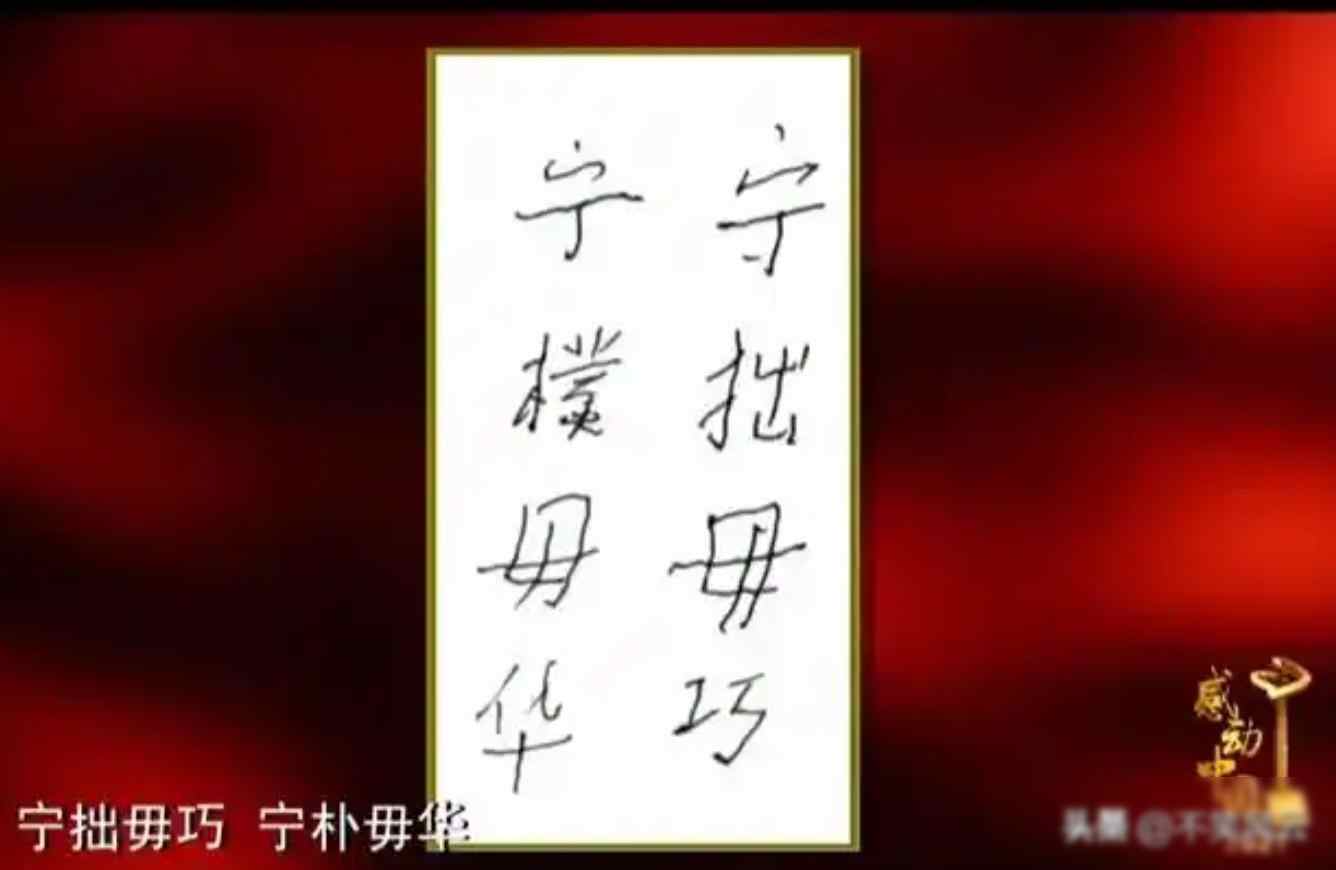 宁拙毋巧
宁樸毋华
宁拙毋巧 宁朴毋华
感动
中
头条 @不